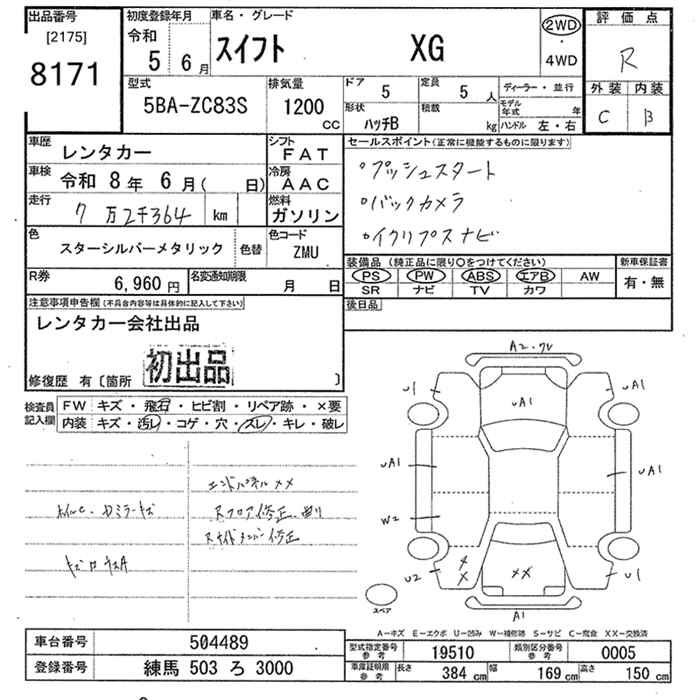 出品番号
[2175]
8171
初度登録年月
令和
5 6月
車名・グレード
スイフト XG
2WD
・
4WD
評価点
R
外装 内装
C B
型式
5BA-ZC83S
排気量
1200
CC
ドア 5
定員 5 人
形状
ハッチB
積載
kg
ディーラー・並行
モデル年式 年
ハンドル 左・右
車歴
レンタカー
シフト
FAT
車検
令和 8年 6月( 日)
冷房
AAC
走行
7万2千364 km
燃料
ガソリン
色
スターシルバーメタリック
色替
色コード
ZMU
R券
6,960 円
名変通知期限
月 日
セールスポイント(正常に機能するものに限ります)
・プッシュスタート
・バックカメラ
・イクリプスナビ
装備品 (純正品に限り○をつけてください)
新車保証書
PS PW ABS エアB AW
SR ナビ TV カワ
有・無
後日品
注意事項申告欄(不具合内容等は具体的に記入して下さい)
レンタカー会社出品
初出品
修復歴 有〔箇所 〕
検査員
記入欄
FW キズ・飛石・ヒビ割・リペア跡・×要
内装 キズ・汚レ・コゲ・穴・スレ・キレ・破レ
エンドパネル XX
Rフロア修正・曲り
Rサイドメンバー修正
A2・ワレ
U1
UA1
UA1
UA1
UA1
W2
U2
X
X
XX
U1
A1
スペア
A-キズ E-エクボ U-凹み W-補修跡 S-サビ C-腐食 XX-交換済
車台番号 504489
登録番号 練馬 503 ろ 3000
型式指定番号
参考
19510
類別区分番号
参考
0005
車庫証明用
参考
長さ 384 cm
幅 169 cm
高さ 150 cm